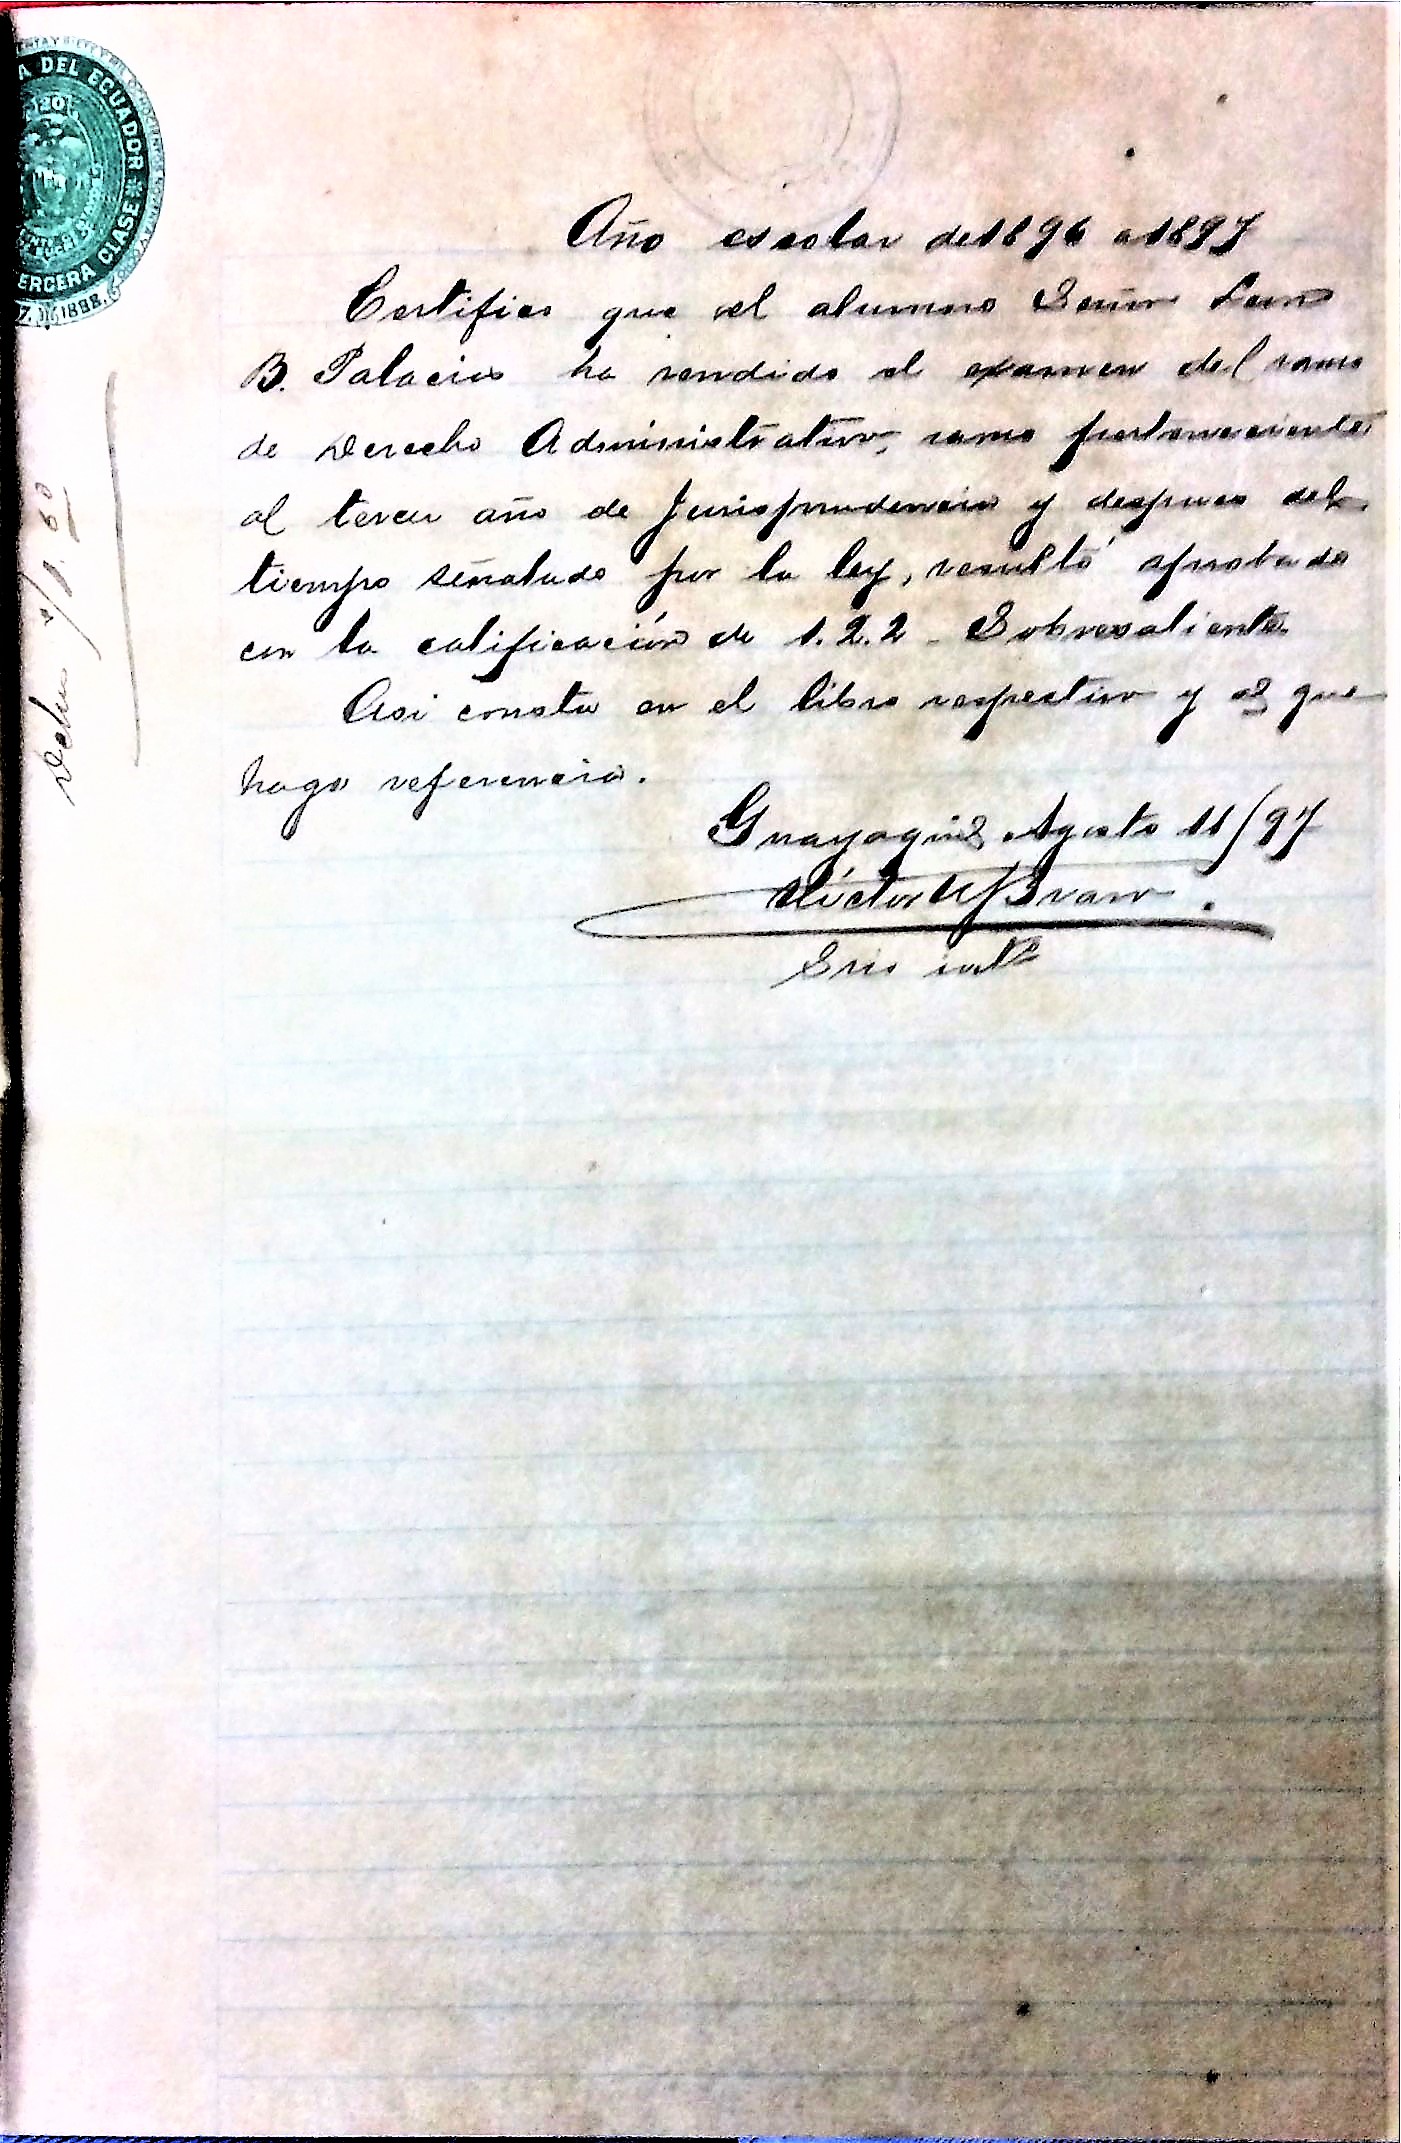 A DEL ECUADOR
TERCERA CLASE
1898.
Año escolar de 1896 a 1897
Certifico que el alumno Señor Leon
B. Palacios ha rendido el examen del ramo
de Derecho Administrativo, ramo perteneciente
al tercer año de Jurisprudencia y despues del
tiempo señalado por la ley, resultó aprobado
con la calificación de 1.2.2 - Sobresaliente
Asi consta en el libro respectivo y al que
hago referencia.
Guayaquil Agosto 11/97
Víctor M Bravo.
Srio int°